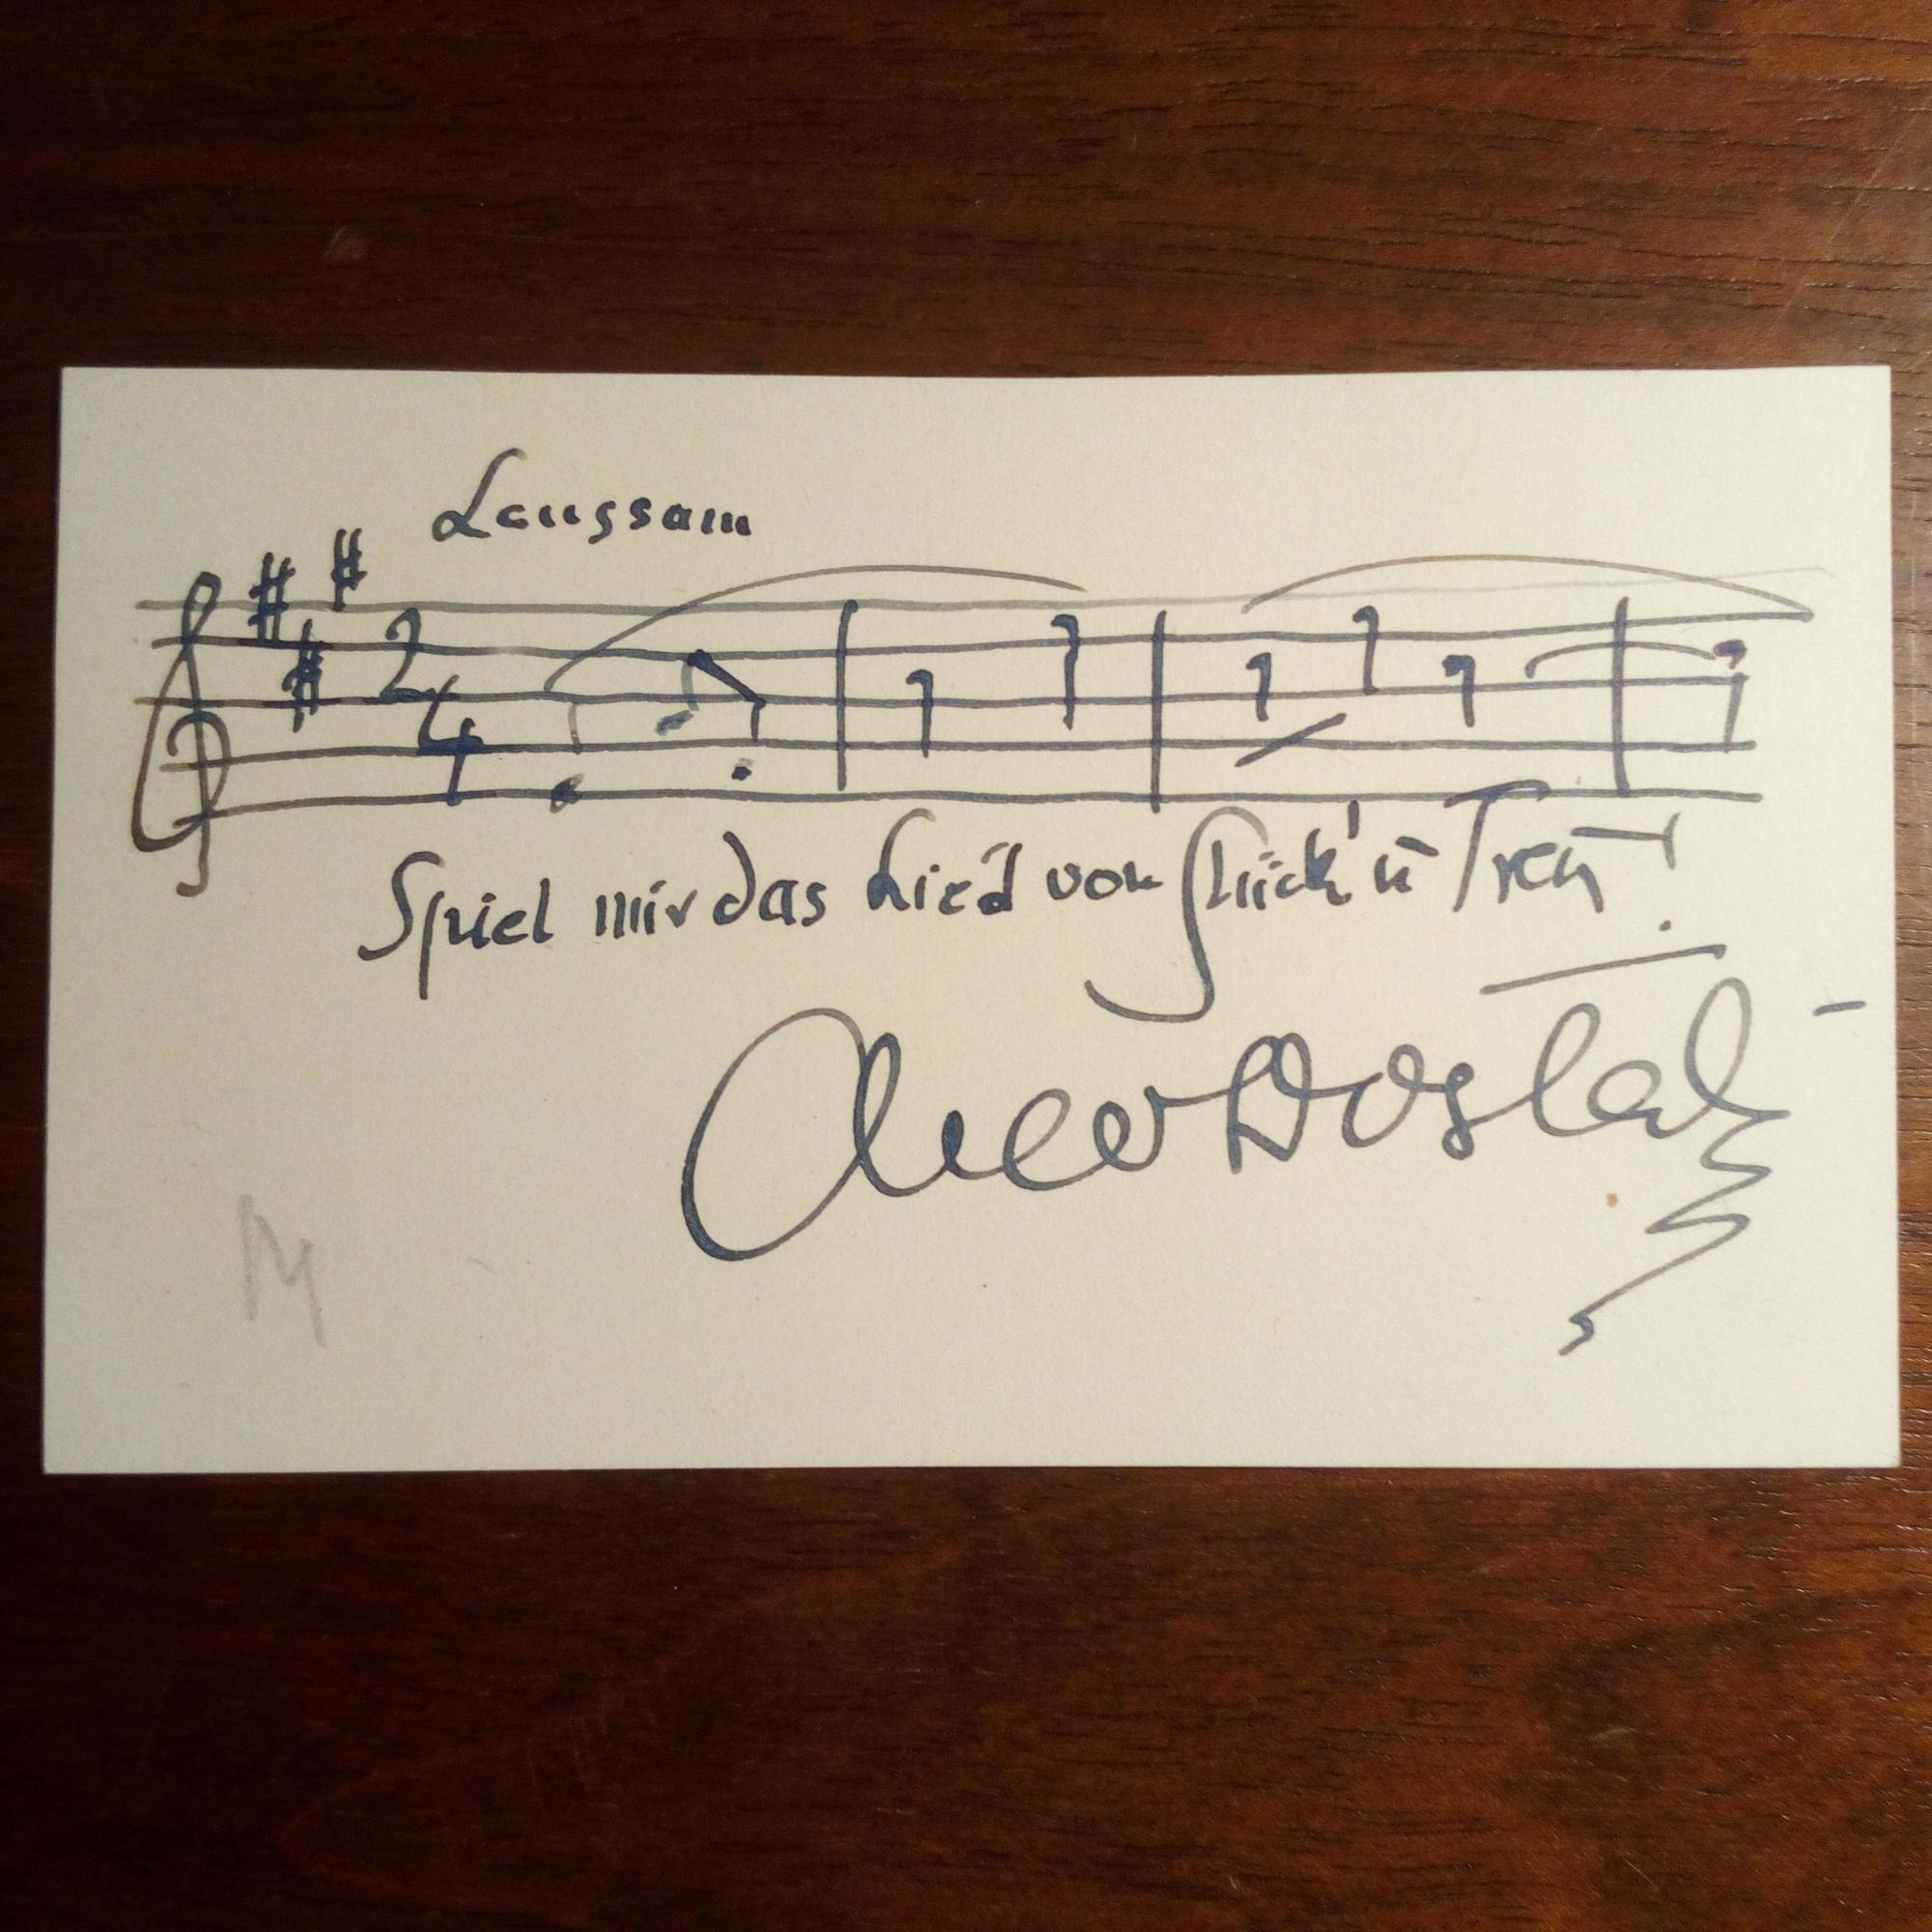 Langsam
2
4
Spiel mir das Lied von Glück u Treu!
Nico Dostal
M